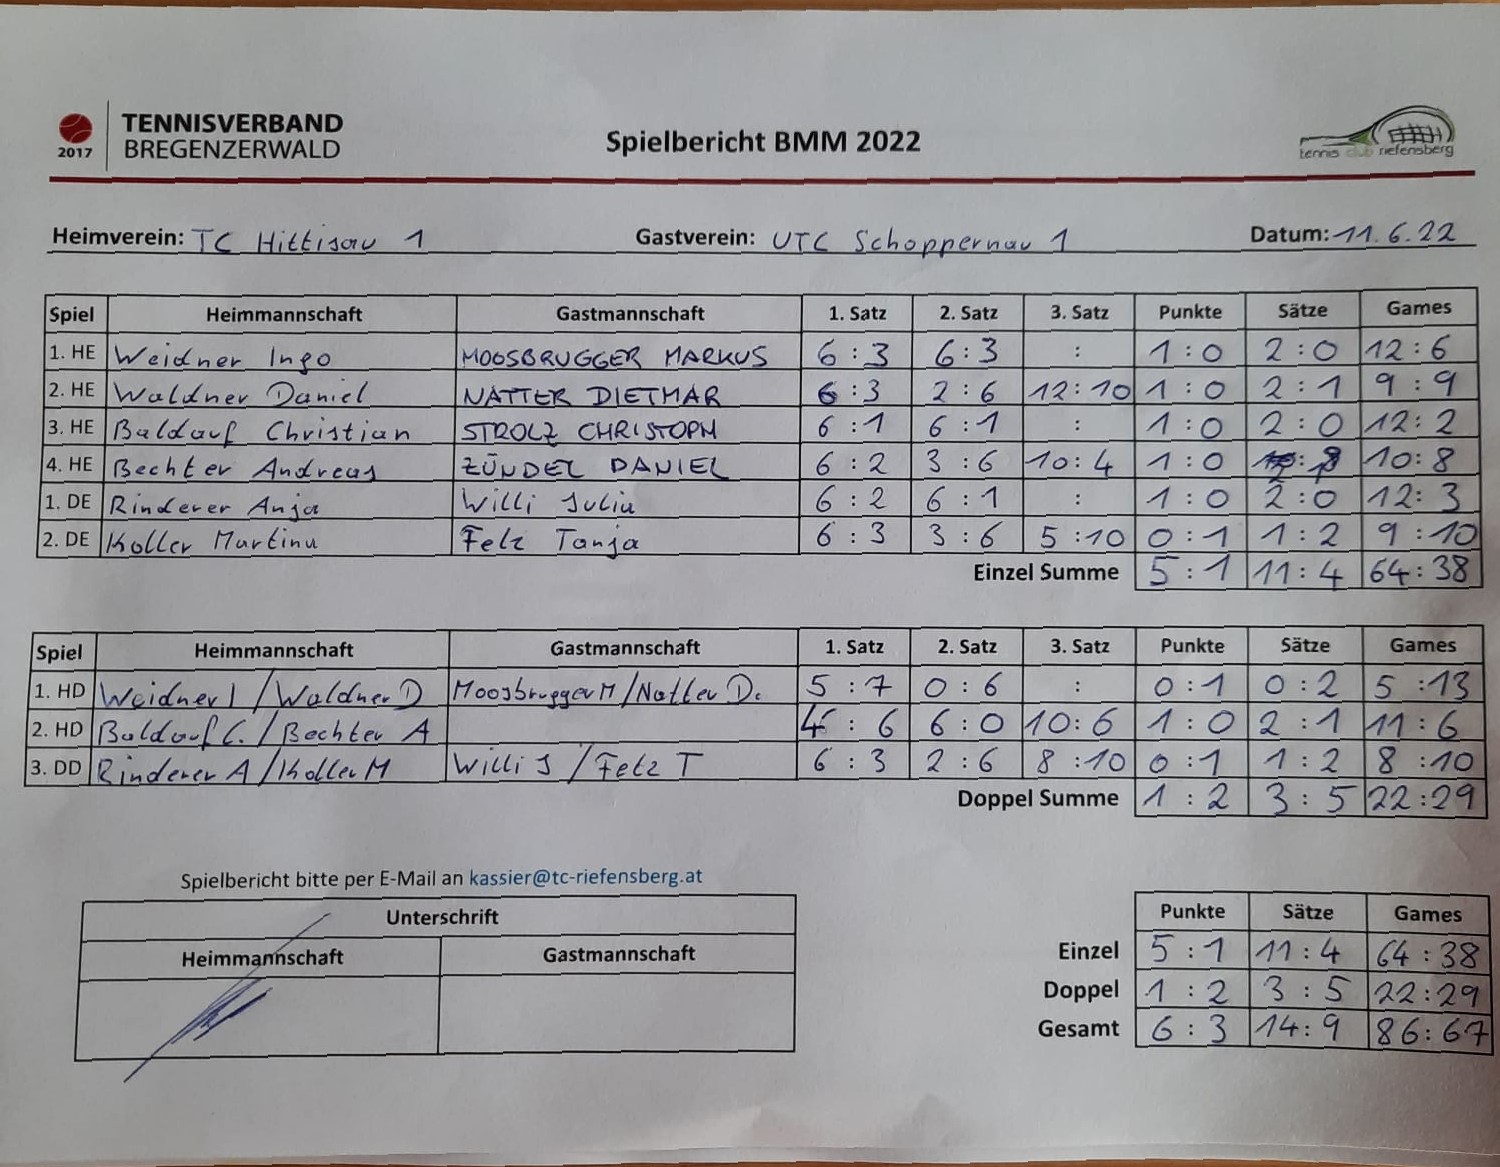 TENNISVERBAND
BREGENZERWALD
2017
Spielbericht BMM 2022
tennis club riefensberg
Heimverein: TC Hittisau 1 Gastverein: UTC Schoppernau 1 Datum: 11.6.22
Spiel Heimmannschaft Gastmannschaft 1. Satz 2. Satz 3. Satz Punkte Sätze Games
1. HE Weidner Ingo MOOSBRUGGER MARKUS 6 : 3 6 : 3 : 1 : 0 2 : 0 12 : 6
2. HE Waldner Daniel NATTER DIETMAR 6 : 3 2 : 6 12 : 10 1 : 0 2 : 1 9 : 9
3. HE Baldauf Christian STROLZ CHRISTOPH 6 : 1 6 : 1 : 1 : 0 2 : 0 12 : 2
4. HE Bechter Andreas ZÜNDEL DANIEL 6 : 2 3 : 6 10 : 4 1 : 0 : 10 : 8
1. DE Rinderer Anja Willi Julia 6 : 2 6 : 1 : 1 : 0 2 : 0 12 : 3
2. DE Koller Martina Felz Tanja 6 : 3 3 : 6 5 : 10 0 : 1 1 : 2 9 : 10
Einzel Summe 5 : 1 11 : 4 64 : 38
Spiel Heimmannschaft Gastmannschaft 1. Satz 2. Satz 3. Satz Punkte Sätze Games
1. HD Weidner I / Waldner D Moosbrugger M / Natter D. 5 : 7 0 : 6 : 0 : 1 0 : 2 5 : 13
2. HD Baldauf C. / Bechter A 4 : 6 6 : 0 10 : 6 1 : 0 2 : 1 11 : 6
3. DD Rinderer A / Koller M Willi J / Felz T 6 : 3 2 : 6 8 : 10 0 : 1 1 : 2 8 : 10
Doppel Summe 1 : 2 3 : 5 22 : 29
Spielbericht bitte per E-Mail an kassier@tc-riefensberg.at
Unterschrift
Heimmannschaft Gastmannschaft
Punkte Sätze Games
Einzel 5 : 1 11 : 4 64 : 38
Doppel 1 : 2 3 : 5 22 : 29
Gesamt 6 : 3 14 : 9 86 : 67